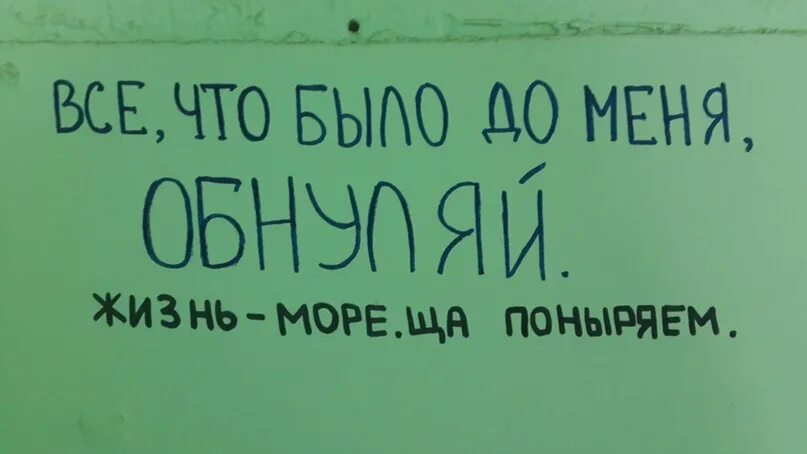 ВСЕ, ЧТО БЫЛО ДО МЕНЯ,
ОБНУЛЯЙ.
ЖИЗНЬ - МОРЕ. ЩА ПОНЫРЯЕМ.